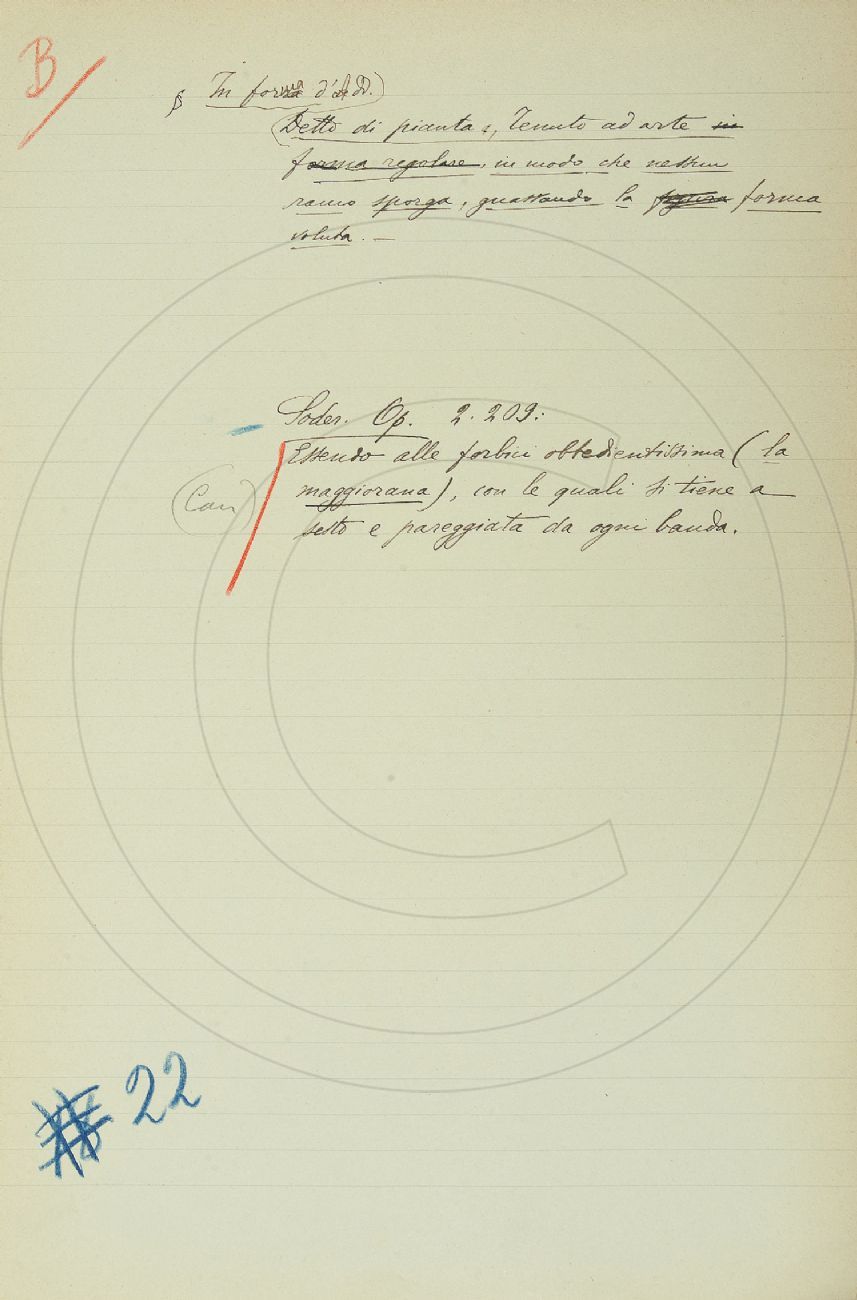 B
§ In forma d'add.)
Detto di pianta, Tenuto ad arte in
forma regolare, in modo che nessun
ramo sporga, guastando la figura forma
voluta. —
Soder. Op. 2. 209:
Essendo alle forbici obbedientissima (la
maggiorana), con le quali si tiene a
sesto e pareggiata da ogni banda.
(Can)
22